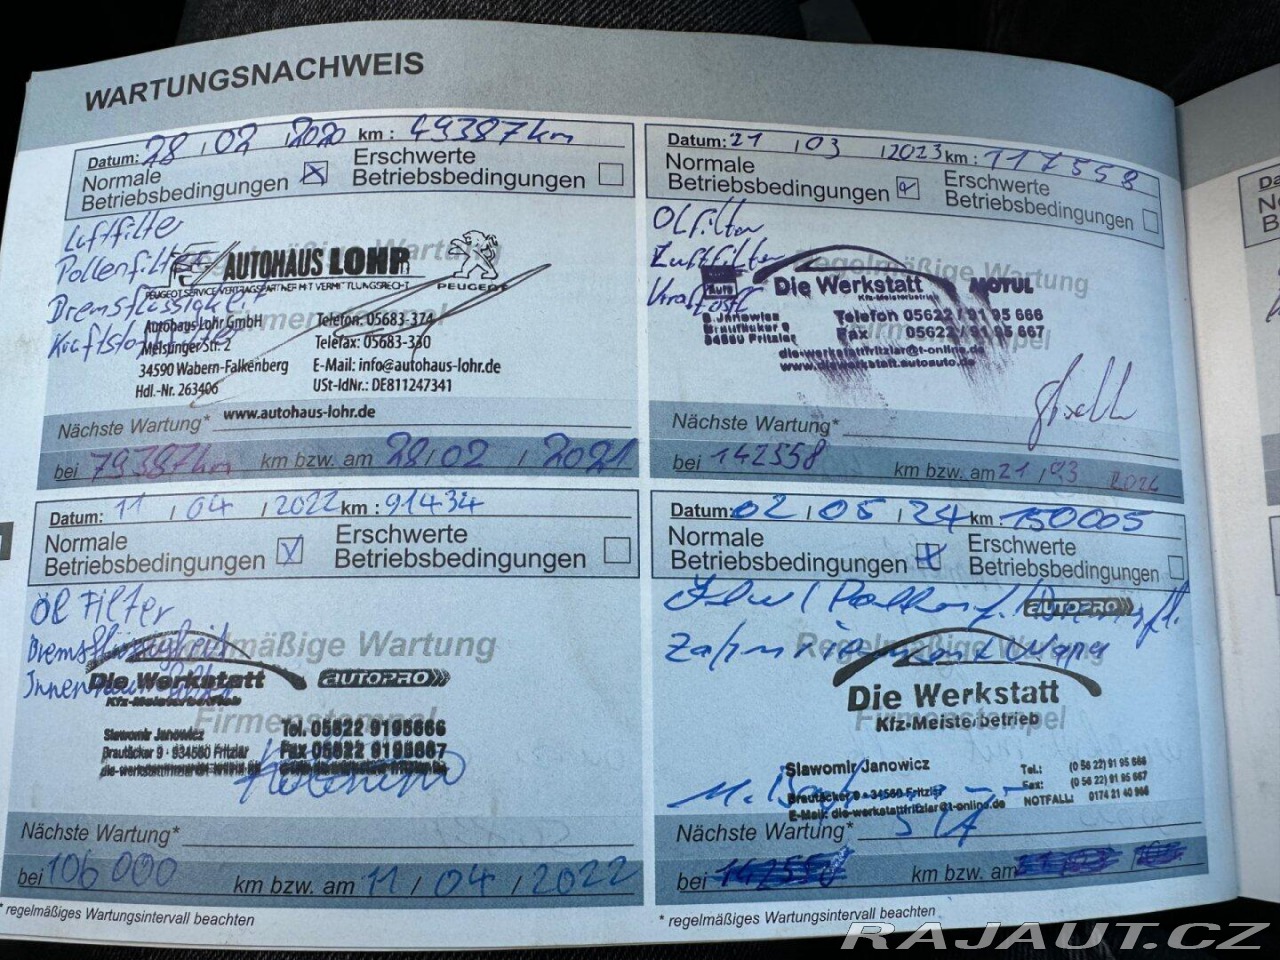 WARTUNGSNACHWEIS
Datum: 28 . 02 . 2020 km : 49387km
Normale
Betriebsbedingungen
Erschwerte
Betriebsbedingungen
Luftfilter
Pollenfilter
Bremsflüssigkeit
Kraftstofffilter
Regelmäßige Wartung
AUTOHAUS LOHR
PEUGEOT SERVICE VERTRAGSPARTNER MIT VERMITTLUNGSRECHT
PEUGEOT
Firmenstempel
Autohaus Lohr GmbH
Melsunger Str. 2
34590 Wabern-Falkenberg
Hdl.-Nr. 263406
Telefon: 05683-374
Telefax: 05683-330
E-Mail: info@autohaus-lohr.de
USt-IdNr.: DE811247341
www.autohaus-lohr.de
Nächste Wartung*
bei 79387km km bzw. am 28 / 02 / 2021
Datum: 21 . 03 . 2023 km : 117558
Normale
Betriebsbedingungen
Erschwerte
Betriebsbedingungen
Ölfilter
Luftfilter
Regelmäßige Wartung
Die Werkstatt
Kfz-Meisterbetrieb
MOTUL
Firmenstempel
S. Janowicz
Brautäcker 9
34560 Fritzlar
Telefon 05622 / 91 95 666
Fax 05622 / 91 95 667
die-werkstattfritzlar@t-online.de
www.diewerkstatt.autoauto.de
Nächste Wartung*
bei 142558 km bzw. am 21 / 03 2024
Datum: 11 / 04 / 2022 km : 91434
Normale
Betriebsbedingungen
Erschwerte
Betriebsbedingungen
Öl Filter
Bremsflüssigkeit
Regelmäßige Wartung
Die Werkstatt
AUTOPRO
Kfz-Meisterbetrieb
Firmenstempel
Slawomir Janowicz
Brautäcker 9 · 34560 Fritzlar
Tel. 05622 9195666
Fax 05622 9195667
Nächste Wartung*
bei 106 000 km bzw. am 11 / 04 / 2022
* regelmäßiges Wartungsintervall beachten
Datum: 02 / 05 / 24 km : 150005
Normale
Betriebsbedingungen
Erschwerte
Betriebsbedingungen
AUTOPRO
Regelmäßige Wartung
Die Werkstatt
Kfz-Meisterbetrieb
Firmenstempel
Slawomir Janowicz
Brautäcker 9 · 34560 Fritzlar
E-Mail: die-werkstattfritzlar@t-online.de
Tel.: (0 56 22) 91 95 666
Fax: (0 56 22) 91 95 667
NOTFALL: 0174 21 40 966
Nächste Wartung*
bei 142558 km bzw. am
* regelmäßiges Wartungsintervall beachten
RAJAUT.CZ